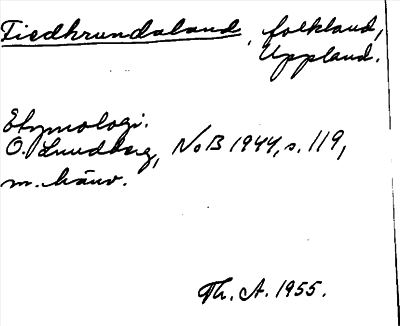 Tiedkrundaland, folkland,
Uppland.
Etymologi.
O. Lundberg, NoB 1944, s. 119,
m. hänv.
Th. A. 1955.